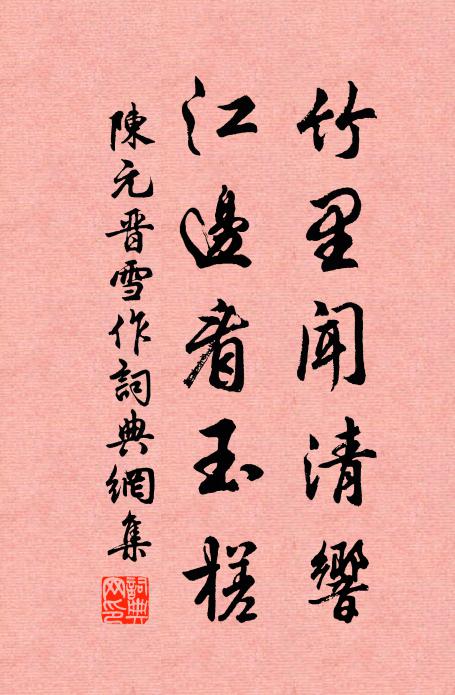 竹里聞清響
江邊看玉槎
陳元晋雪作詞典網集
詞典网印